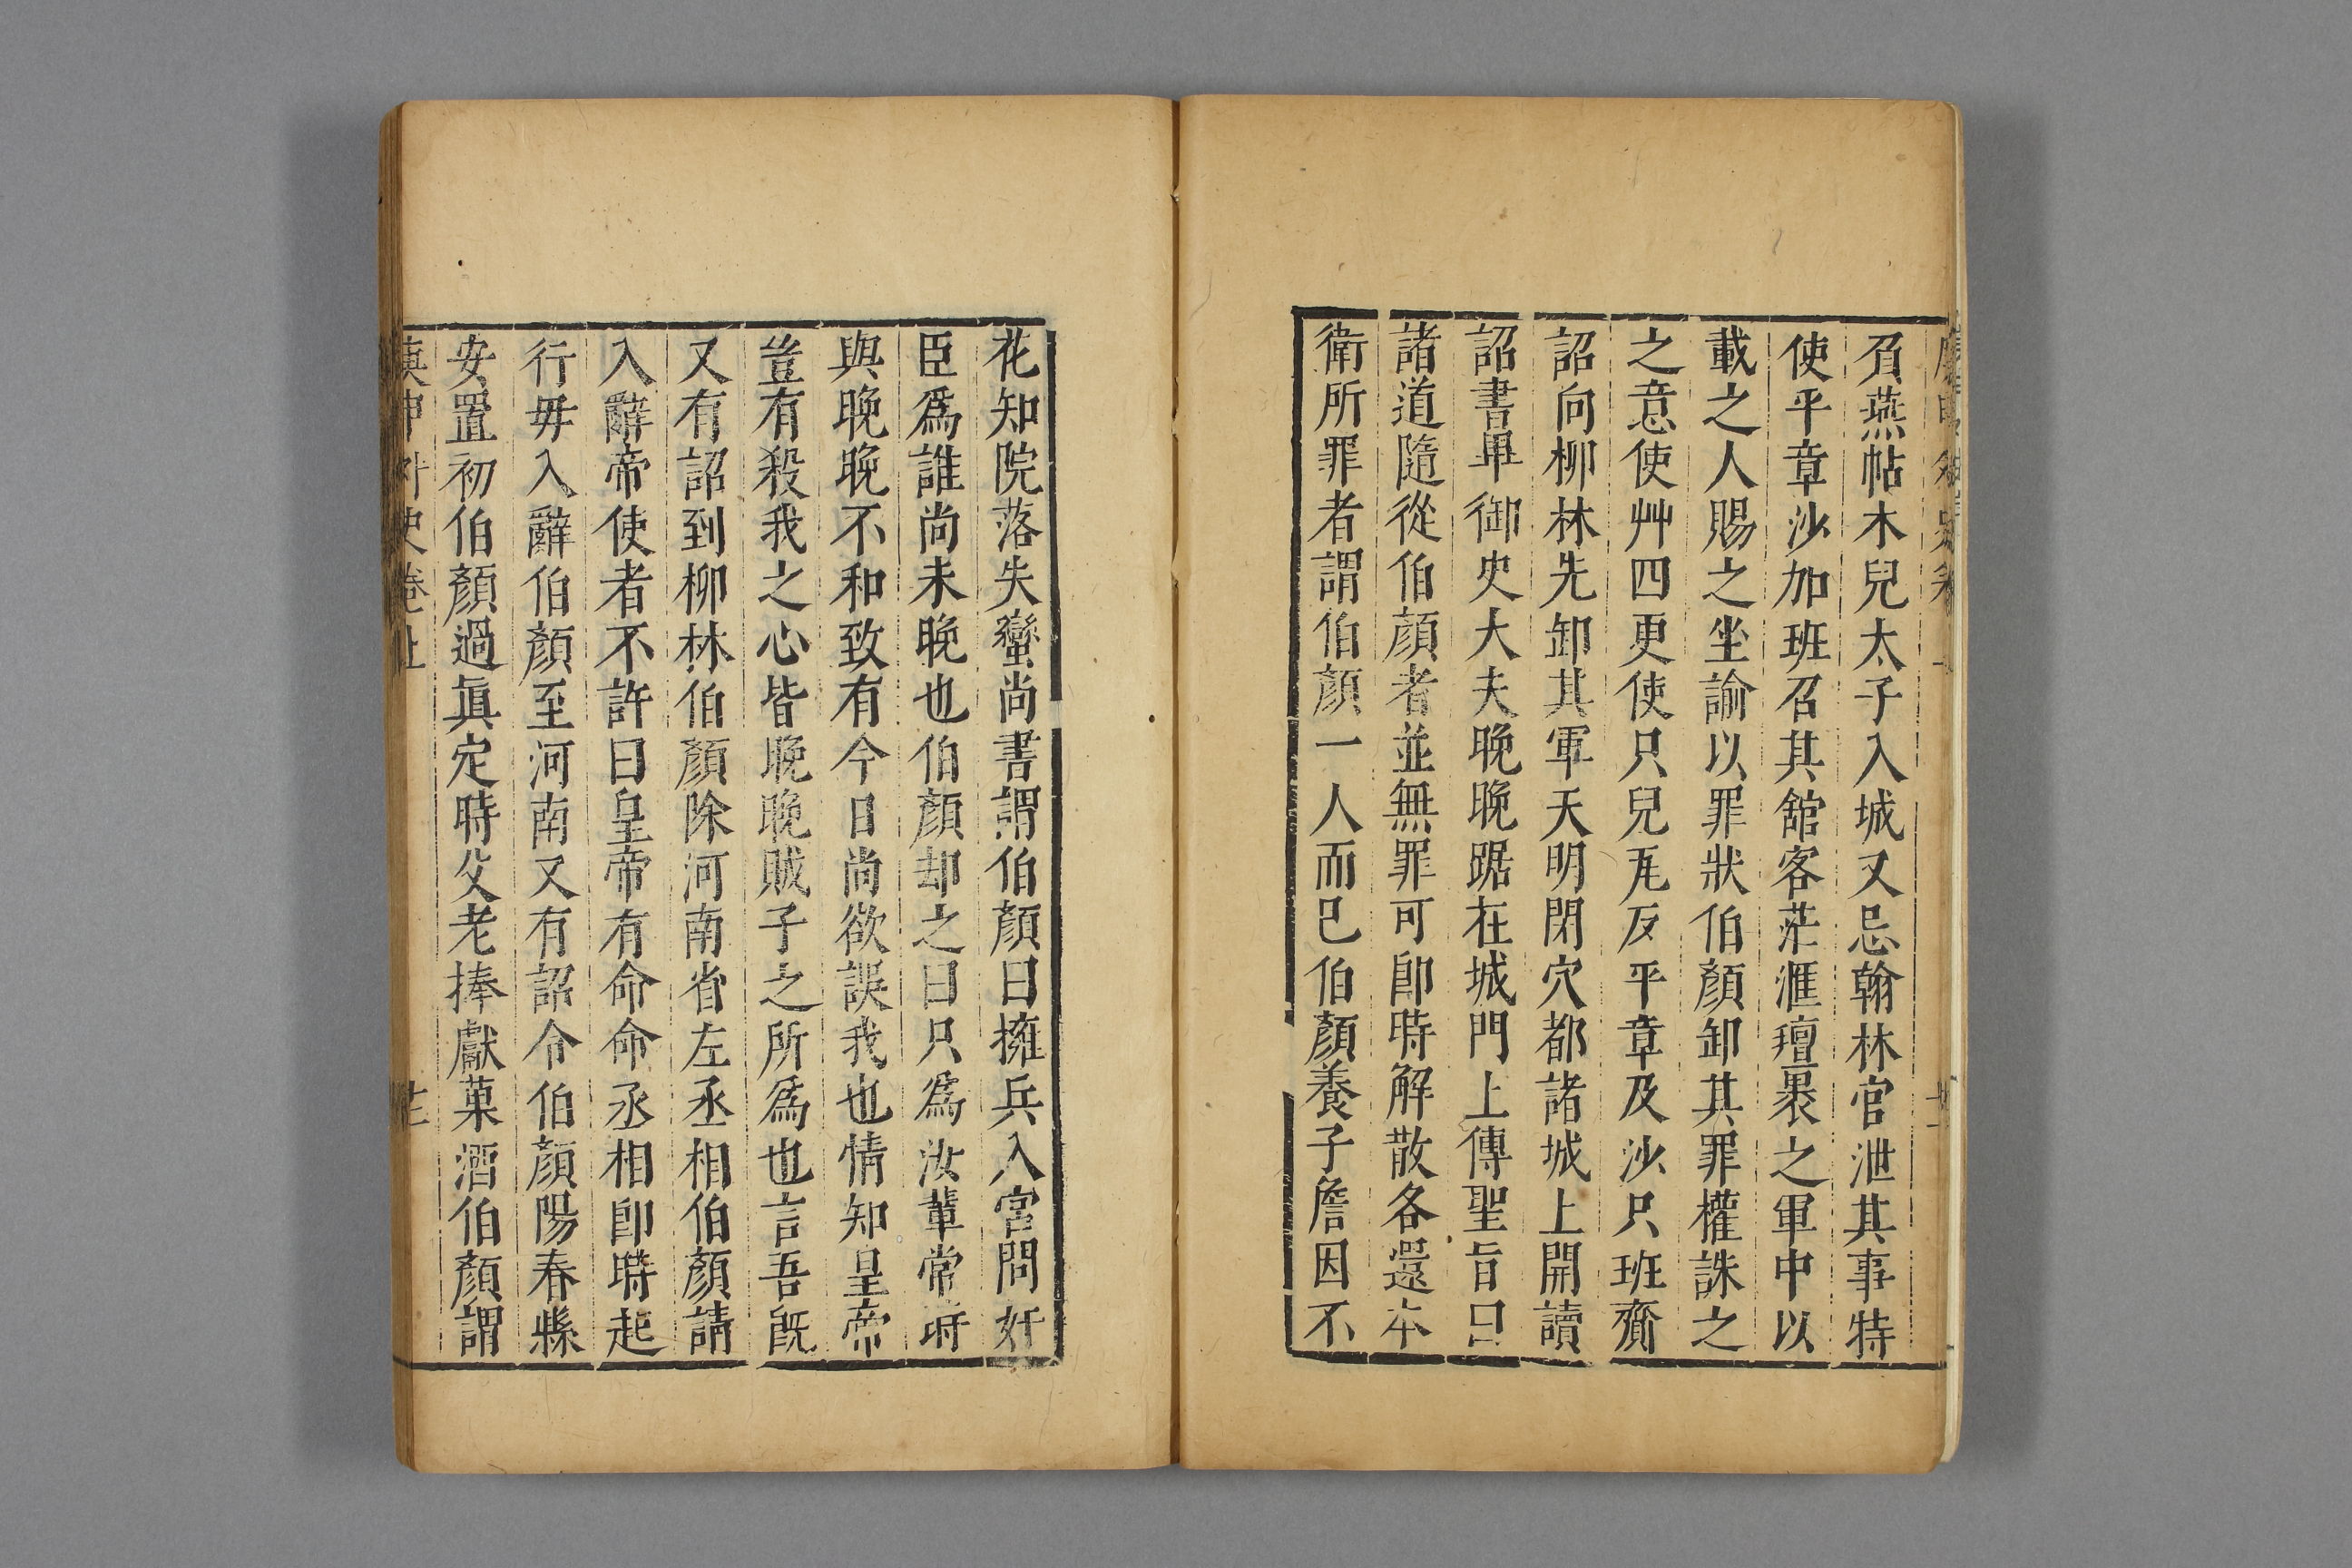 負燕帖木兒太子入城又忌翰林官泄其事特
使平章沙加班召其舘客范滙氊裹之軍中以
載之人賜之坐諭以罪狀伯顏卸其罪權誅之
之意使艸四更使只兒瓦反平章及沙只班賫
詔向柳林先卸其軍天明閉穴都諸城上開讀
詔書畢御史大夫晚晚踞在城門上傳聖旨曰
諸道隨從伯顏者並無罪可即時解散各還本
衛所罪者謂伯顏一人而已伯顏養子詹因不
花知院落失蠻尚書謂伯顏曰擁兵入宮問奸
臣爲誰尚未晚也伯顏却之曰只爲汝輩常時
與晚晚不和致有今日尚欲誤我也情知皇帝
豈有殺我之心皆晚晚賊子之所爲也言吾既
又有詔到柳林伯顏除河南省左丞相伯顏請
入辭帝使者不許曰皇帝有命命丞相即時起
行毋入辭伯顏至河南又有詔令伯顏陽春縣
安置初伯顏過眞定時父老捧獻菓酒伯顏謂
史卷